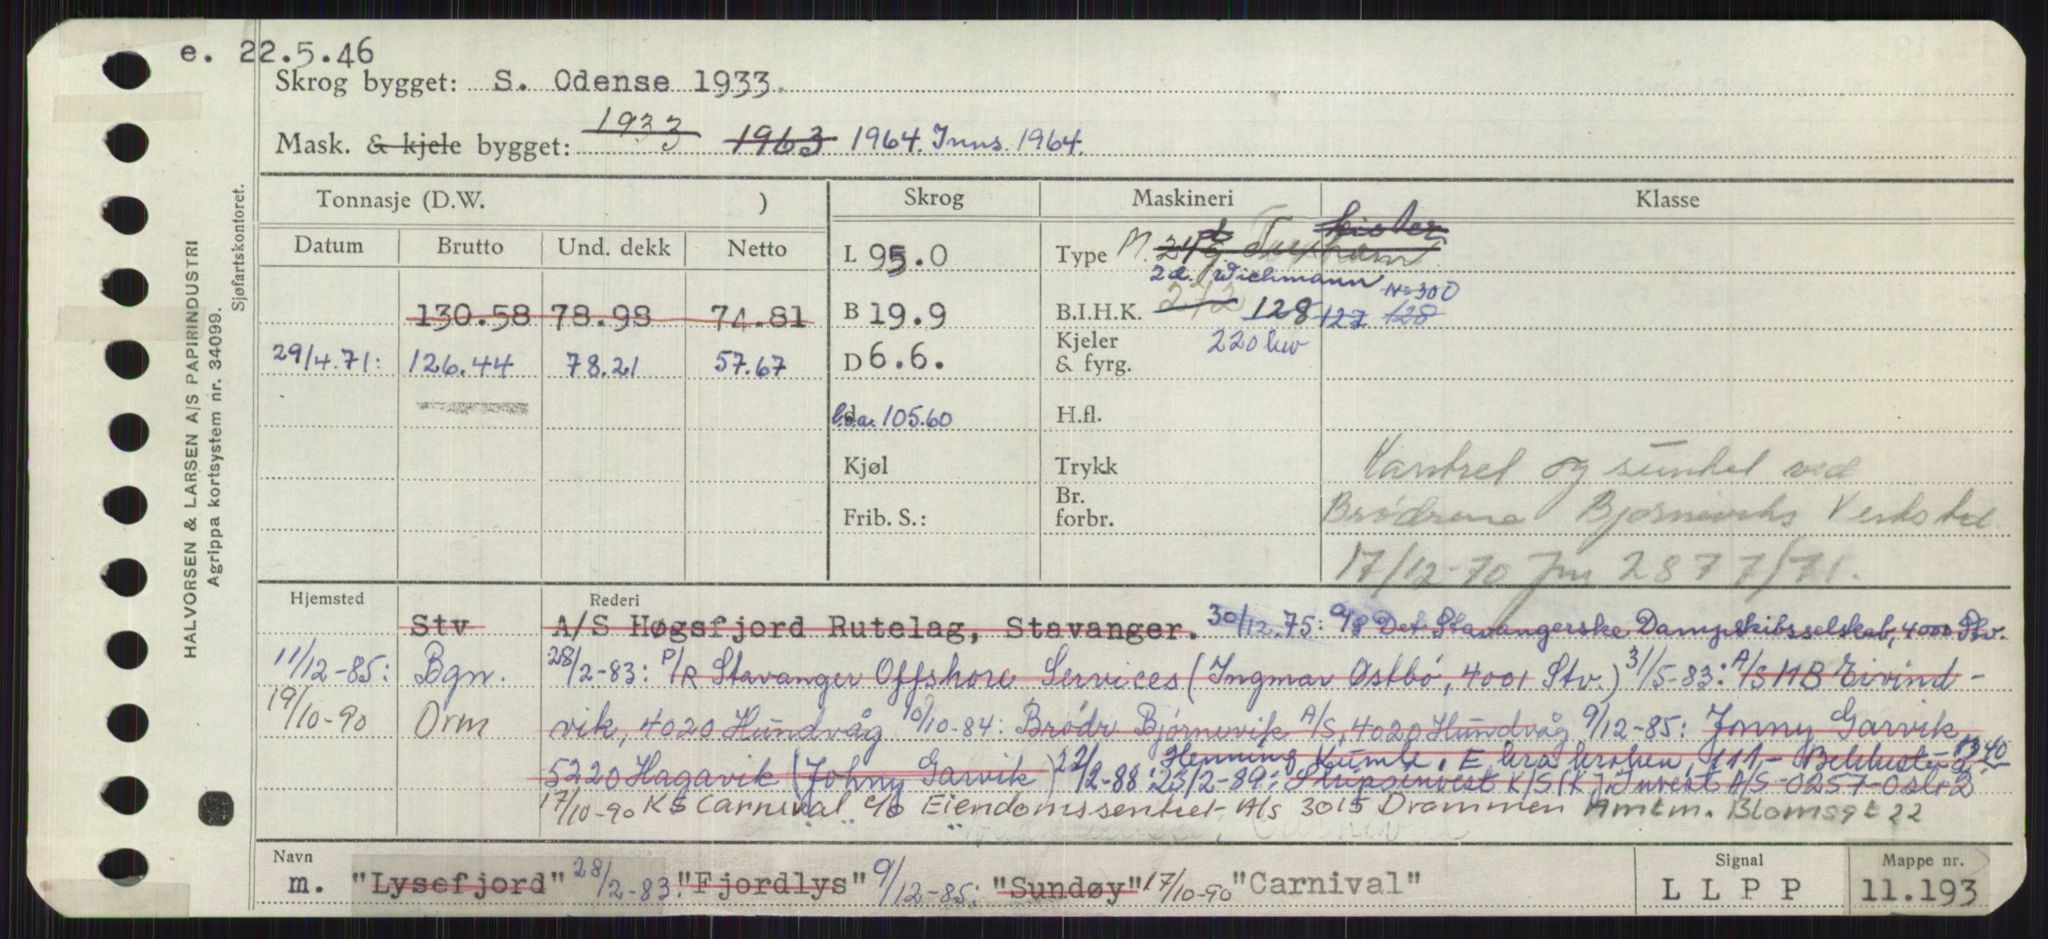 e. 22.5.46
Skrog bygget: S. Odense 1933.
Mask. & kjele bygget: 1933 1963 1964. Inns. 1964.
Tonnasje (D.W. ) Skrog Maskineri Klasse
Datum Brutto Und. dekk Netto
L 95.0 Type M.
2 a. Wichmann
N=300
130.58 78.98 74.81 B 19.9 B.I.H.K. 272 128 127 128
29/4.71: 126.44 78.21 57.67 D 6.6. Kjeler & fyrg. 220 kw
l.o.a. 105.60 H.fl.
Kjøl Trykk Kantret og sunket ved
Frib. S.: Br. forbr. Brødrene Bjørneviks Verksted
17/12-70 Jnr 2877/71.
Hjemsted Rederi
Stv A/S Høgsfjord Rutelag, Stavanger. 30/12.75: A/S Det Stavangerske Dampskibsselskab, 4000 Stv.
11/12-85: Bgn. 28/2-83: P/R Stavanger Offshore Services (Ingmar Østbö, 4001 Stv.) 31/5-83: A/S MB Eivind-
19/10-90 Drm vik, 4020 Hundvåg 10/10-84: Brødr Bjørnevik A/S, 4020 Hundvåg 9/12-85: Jonny Garvik
5220 Hagavik (Johny Garvik) 22/2-88: Henning Kumle, 23/2-89: Skipsinvest K/S (K) Invest A/S-0257-Oslo 2
17/10-90 KS Carnival c/o Eiendomssentret A/S 3015 Drammen Amtm. Blomsgt 22
Navn Signal Mappe nr.
m. "Lysefjord" 28/2-83: "Fjordlys" 9/12-85: "Sundøy" 17/10-90 "Carnival" L L P P 11.193
HALVORSEN & LARSEN A/S PAPIRINDUSTRI
Agrippa kortsystem nr. 34099.
Sjøfartskontoret.